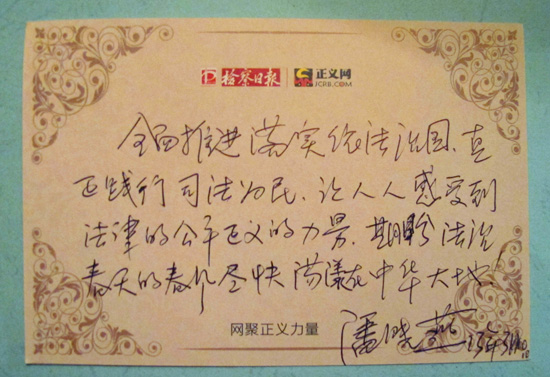 检察日报 正义网
JCRB.COM
全面推进落实依法治国、真
正践行司法为民、让人人感受到
法律的公平正义的力量、期盼法治
春天的春风尽快荡漾在中华大地!
网聚正义力量
潘晓燕